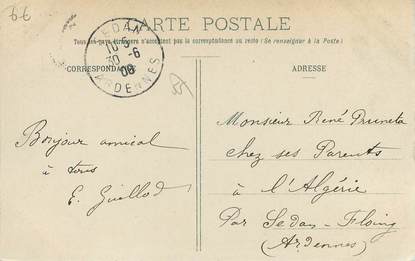 66
CARTE POSTALE
Tous les pays étrangers n'acceptent pas la correspondance au recto (Se renseigner à la Poste)
CORRESPONDANCE
ADRESSE
SEDAN
30 -6
08
ARDENNES
Bonjour amical
à tous
E. Guillod
Monsieur René Pruneta
chez ses Parents
à l'Algérie
Par Sedan-Floing
(Ardennes)